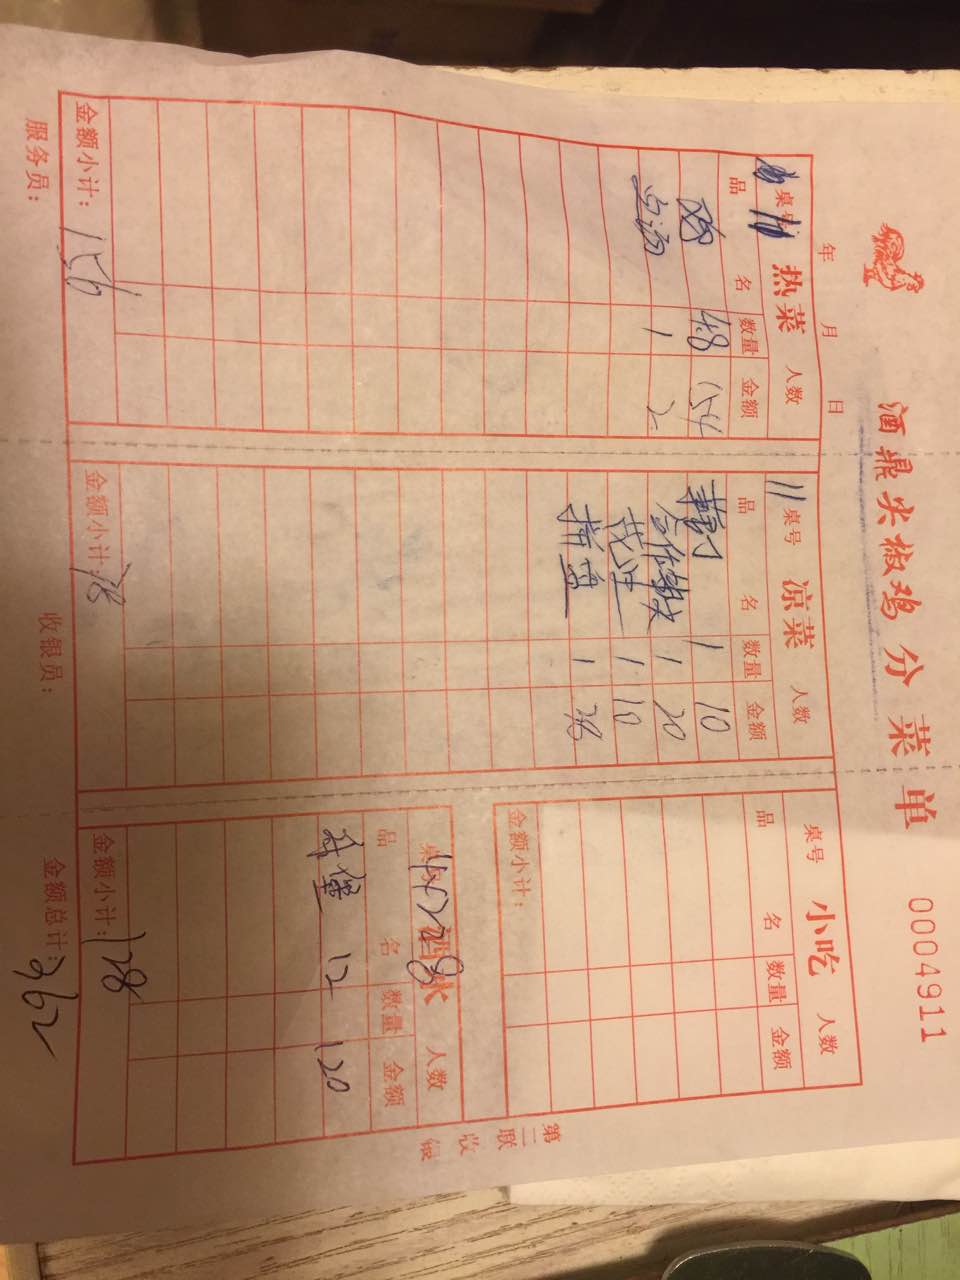 酒鼎尖椒鸡分菜单
0004911
年 月 日
桌号 11 热菜 人数
品名 数量 金额
鸡 4.8 154
鱼汤 1 2
金额小计: 156
11 桌号 凉菜 人数
品名 数量 金额
1 10
1 20
1 10
拼盘 1 38
金额小计: 78
桌号 小吃 人数
品名 数量 金额
金额小计:
桌号 酒水 人数
品名 数量 金额
12 120
金额小计: 128
服务员:
收银员:
金额总计: 362
第二联 收银